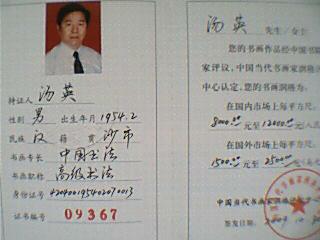 持证人 汤英
性别 男 出生年月 1954.2
民族 汉 籍贯 沙市
书画专长 中国书法
书画职称 高级书法
身份证号
证书编号 09367
汤英 先生/女士
您的书画作品经中国书
家评议,中国当代书画家润格
中心认定,您的书画润格为
在国内市场上每平方尺,
8000.00 元至 12000.00 元(人民
在国外市场上每平方尺,
1500.00 元至 2500
中国当代书画家润格
签发日期